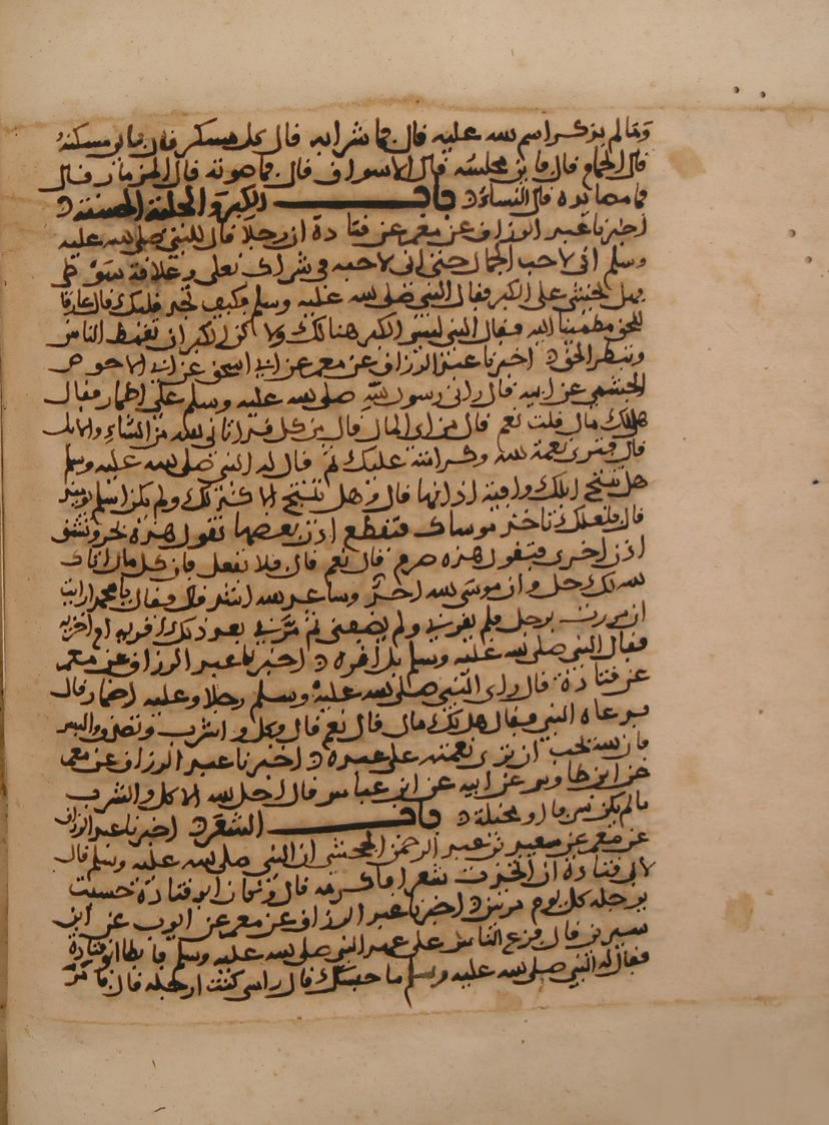 وما لم يذكر اسم الله عليه قال فما شرابه قال كل مسكر قال فأين مسكنه
قال الحمام قال فأين مجلسه قال الاسواق قال فما صوته قال المزمار قال
فما مصايده قال النساء باب الكبر والحلية الحسنة
اخبرنا عبد الرزاق عن معمر عن قتادة ان رجلا قال للنبي صلى الله عليه
وسلم اني لاحب الجمال حتى اني لاحبه في شراك نعلي وعلاقة سوطي
فهل تخشى علي الكبر فقال النبي صلى الله عليه وسلم فكيف تجد قلبك قال عارفا
للحق مطمئنا اليه فقال النبي ليس الكبر هنالك ولكن الكبر ان تغمط الناس
وتبطر الحق اخبرنا عبد الرزاق عن معمر عن ابي اسحق عن ابي الاحوص
الجشمي عن ابيه قال راني رسول الله صلى الله عليه وسلم علي اطمار فقال
هل لك مال قلت نعم قال من اي المال قال من كل قد اتاني الله من الشاء والابل
قال فترى نعمة الله وكرامته عليك ثم قال له النبي صلى الله عليه وسلم
هل تنتج ابلك وافية اذانها قال وهل تنتج الا كذلك ولم يكن اسلم يومئذ
قال فلعلك تاخذ موساك فتقطع اذن بعضها تقول هذه بحر وتشق
اذن اخرى فتقول هذه صرم قال نعم قال فلا تفعل فان كل مال اتاك
الله لك حل وان موسى الله احد وساعد الله اشد قال فقال يا محمد ارايت
ان مررت برجل فلم يقرني ولم يضفني ثم مر بي بعد ذلك اقريه ام اجزيه
فقال النبي صلى الله عليه وسلم بل اقره اخبرنا عبد الرزاق عن معمر
عن قتادة قال راى النبي صلى الله عليه وسلم رجلا وعليه اطمار قال
فدعاه النبي فقال هل لك مال قال نعم قال فكل واشرب وتصدق والبس
فان الله يحب ان يرى نعمته على عبده اخبرنا عبد الرزاق عن معمر
عن ابن طاوس عن ابيه عن ابن عباس قال احل الله الاكل والشرب
ما لم يكن سرفا او مخيلة باب الشعر اخبرنا عبد الرزاق
عن معمر عن سعيد بن عبد الرحمن الجحشي ان النبي صلى الله عليه وسلم قال
لابي قتادة ان اتخذت شعرا فاكرمه قال وكان ابو قتادة حسبت
يرجله كل يوم مرتين اخبرنا عبد الرزاق عن معمر عن ايوب عن ابن
سيرين قال فزع الناس على عهد النبي صلى الله عليه وسلم فابطا ابو قتادة
فقال له النبي صلى الله عليه وسلم ما حبسك قال راسي كنت ارجله قال فامر